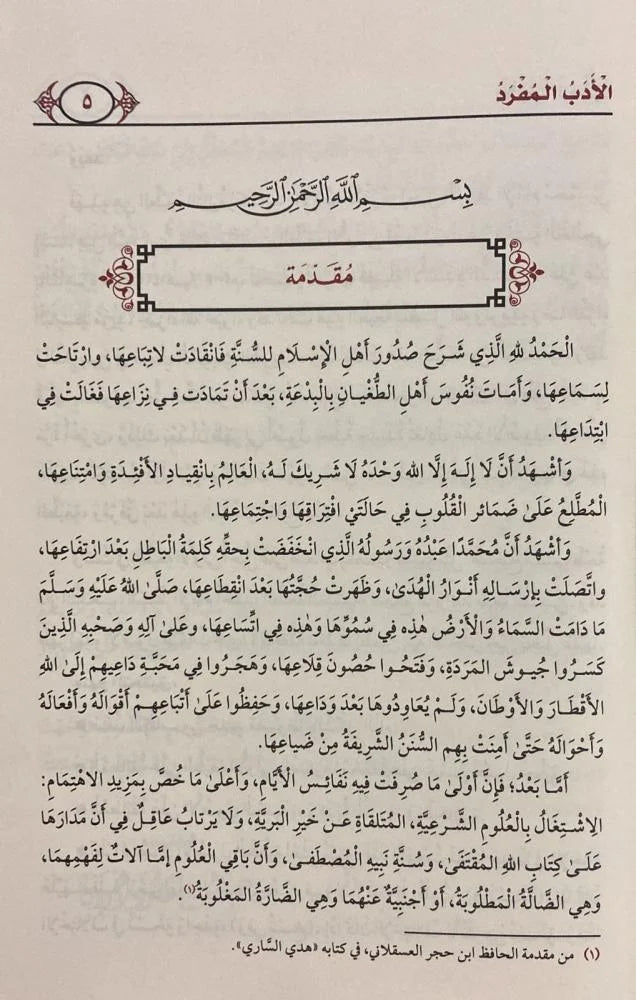 الْأَدَبُ الْمُفْرَدُ
٥
بِسْمِ اللَّهِ الرَّحْمَٰنِ الرَّحِيمِ
مُقَدِّمَة
الْحَمْدُ لله الَّذِي شَرَحَ صُدُورَ أَهْلِ الْإِسْلَامِ للسُّنَّةِ فَانْقَادَتْ لاتِبَاعِهَا، وارْتَاحَتْ
لِسَمَاعِهَا، وَأَمَاتَ نُفُوسَ أَهْلِ الطُّغْيانِ بِالْبِدْعَةِ، بَعْدَ أَنْ تَمَادَت فِي نِزَاعِهَا فَغَالَتْ فِي
ابْتِدَاعِهَا.
وَأَشْهَدُ أَنَّ لَا إِلَهَ إِلَّا الله وَحْدَهُ لَا شَرِيكَ لَهُ، الْعَالِمُ بِانْقِيادِ الْأَفْئِدَةِ وَامْتِنَاعِهَا،
الْمُطَّلِعُ عَلَىٰ ضَمَائر الْقُلُوبِ فِي حَالَتَيْ افْتِرَاقِهَا وَاجْتِمَاعِهَا.
وَأَشْهَدُ أَنَّ مُحَمَّدًا عَبْدُهُ وَرَسُولُهُ الَّذِي انْخَفَضَتْ بِحقِّهِ كَلِمَةُ الْبَاطِلِ بَعْدَ ارْتِفَاعِهَا،
واتَّصَلَتْ بِإِرْسَالِهِ أَنْوَارُ الْهُدَىٰ، وَظَهَرَتْ حُجَّتُهَا بَعْدَ انْقِطَاعِهَا، صَلَّىٰ اللهُ عَلَيْهِ وَسَلَّمَ
مَا دَامَتْ السَّمَاءُ وَالْأَرْضُ هٰذِهِ فِي سُمُوِّهَا وَهٰذِهِ فِي اتِّسَاعِهَا، وعَلىٰ آلِهِ وَصَحْبِهِ الَّذِينَ
كَسَرُوا جُيوشَ المَرَدَةِ، وَفَتَحُوا حُصُونَ قِلَاعِهَا، وَهَجَرُوا فِي مَحَبَّةِ دَاعِيهِمْ إِلَىٰ اللهِ
الأَقْطَارَ وَالْأَوْطَانَ، وَلَمْ يُعَاوِدُوهَا بَعْدَ وَدَاعِهَا، وَحَفِظُوا عَلَىٰ أَتْبَاعِهِمْ أَقْوَالَهُ وَأَفْعَالَهُ
وَأَحْوَالَهُ حَتَّىٰ أَمِنَتْ بِهِم السُّنَنُ الشَّرِيفَةُ مِنْ ضَيَاعِهَا.
أَمَّا بَعْدُ؛ فَإِنَّ أَوْلَىٰ مَا صُرِفَتْ فِيهِ نَفَائِسُ الْأَيَّامِ، وَأَعْلَىٰ مَا خُصَّ بِمَزِيدِ الاهْتِمَامِ:
الِاشْتِغَالُ بِالْعُلُومِ الشَّرْعِيَّةِ، المُتَلقَاةِ عَنْ خَيْرِ الْبَرِيَّةِ، وَلَا يَرْتابُ عَاقِلٌ فِي أَنَّ مَدَارَهَا
عَلَىٰ كِتَابِ اللهِ المُقْتَفَىٰ، وَسُنَّةِ نَبِيهِ الْمُصْطَفىٰ، وَأَنَّ بَاقِي الْعُلُومِ إمَّا آلاتٌ لِفَهْمِهِمَا،
وَهِي الضَّالَّةُ الْمَطْلُوبَةُ، أَوْ أَجْنَبِيَّةٌ عَنْهُمَا وَهِي الضَّارَّةُ المَغْلُوبَةُ(١).
(١) من مقدمة الحافظ ابن حجر العسقلاني، في كتابه «هدي السَّاري».